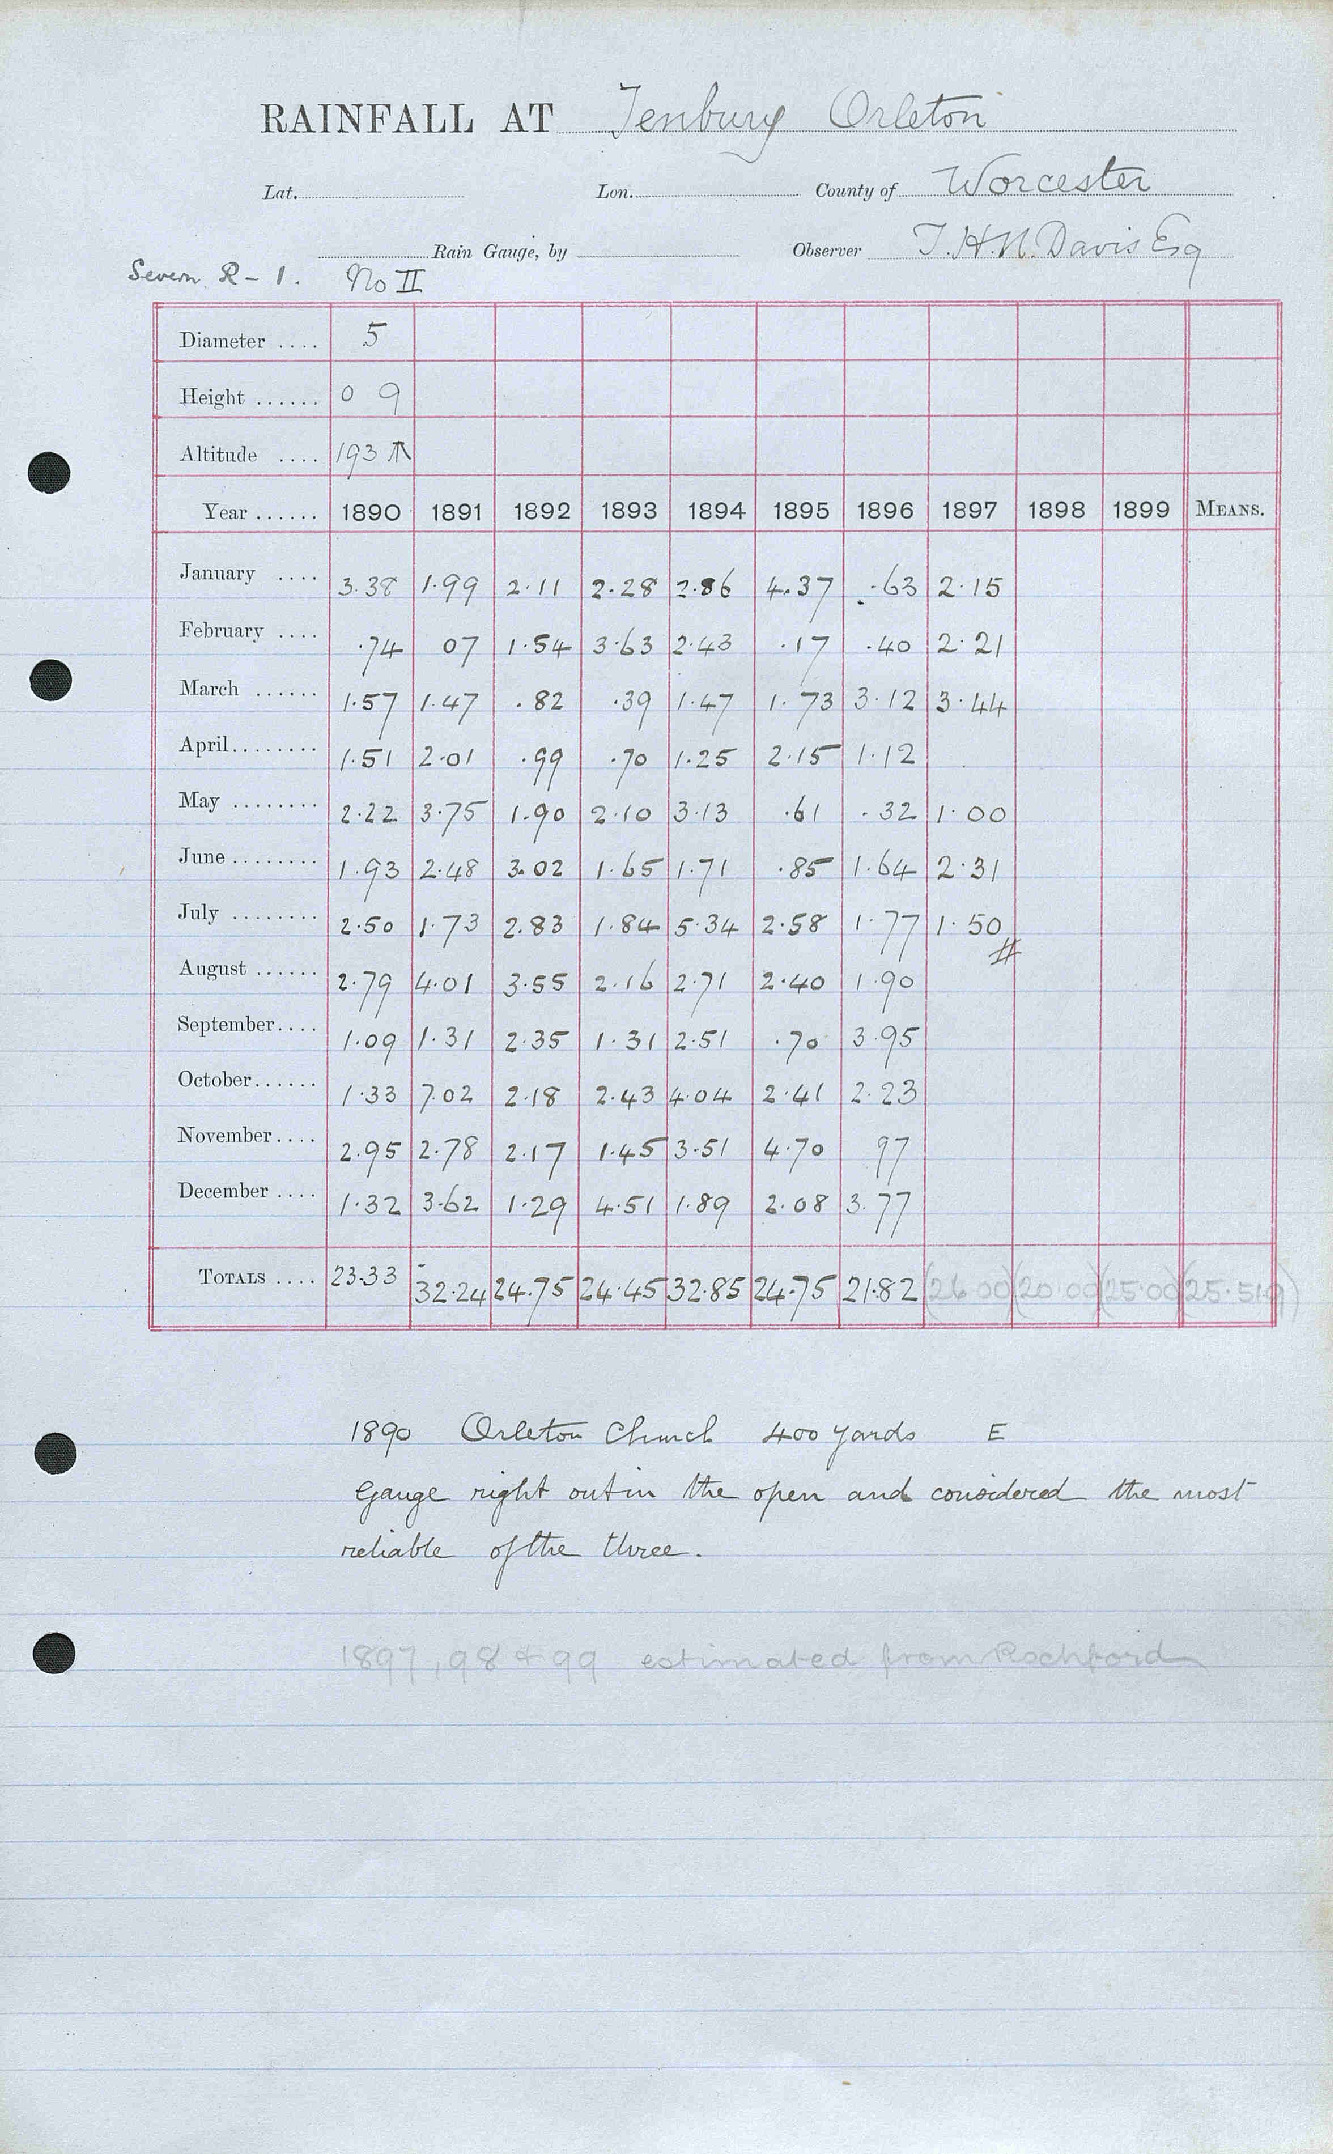 RAINFALL AT Tenbury Orleton
Lat. Lon. County of Worcester
Rain Gauge, by Observer T. H. N. Davis Esq
Severn R - 1. No II
Diameter .... 5
Height ...... 0 9
Altitude .... 193
Year ...... 1890 1891 1892 1893 1894 1895 1896 1897 1898 1899 MEANS.
January .... 3.38 1.99 2.11 2.28 2.86 4.37 .63 2.15
February .... .74 07 1.54 3.63 2.43 .17 .40 2.21
March ...... 1.57 1.47 .82 .39 1.47 1.73 3.12 3.44
April........ 1.51 2.01 .99 .70 1.25 2.15 1.12
May ........ 2.22 3.75 1.90 2.10 3.13 .61 .32 1.00
June ........ 1.93 2.48 3.02 1.65 1.71 .85 1.64 2.31
July ........ 2.50 1.73 2.83 1.84 5.34 2.58 1.77 1.50
August ...... 2.79 4.01 3.55 2.16 2.71 2.40 1.90
September.... 1.09 1.31 2.35 1.31 2.51 .70 3.95
October...... 1.33 7.02 2.18 2.43 4.04 2.41 2.23
November.... 2.95 2.78 2.17 1.45 3.51 4.70 97
December .... 1.32 3.62 1.29 4.51 1.89 2.08 3.77
TOTALS .... 23.33 32.24 24.75 24.45 32.85 24.75 21.82 (26.00) (20.00) (25.00) (25.519)
1890 Orleton Church 400 yards E
Gauge right out in the open and considered the most
reliable of the three.
1897, 98 & 99 estimated from Rochford